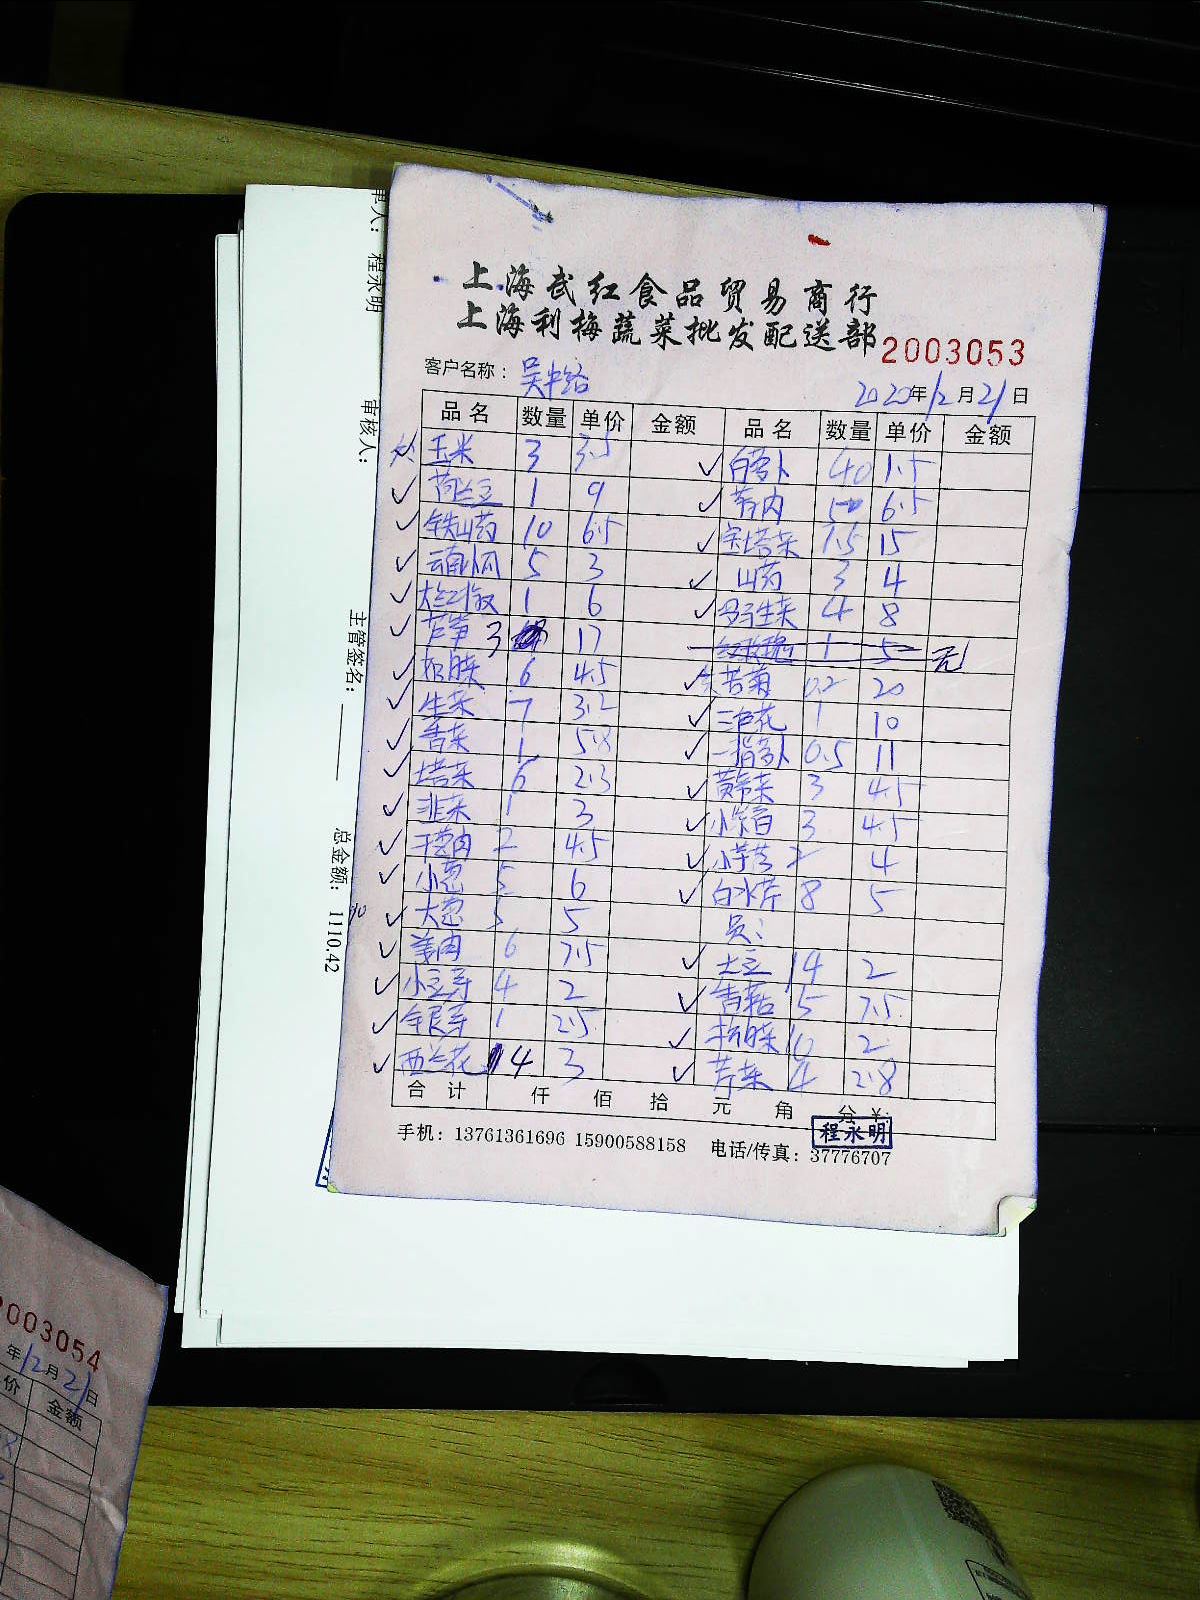 上海武红食品贸易商行
上海利梅蔬菜批发配送部 2003053
客户名称：
2020年12月21日
品名 数量 单价 金额 品名 数量 单价 金额
玉米 3 3.5 白萝卜 40 1.5
荷兰豆 1 9 6.5
铁山药 10 6.5 宝塔菜 7.5 15
云南小瓜 5 3 山药 3 4
大红椒 1 6 罗马生菜 4 8
芦笋 3 17 1 5 元
6 4.5 苦菊 0.2 20
生菜 7 3.2 三色花 1 10
香菜 1 5.8 一指萝卜 0.5 11
塔菜 6 2.3 黄芽菜 3 4.5
韭菜 1 3 3 4.5
干葱肉 2 4.5 小芋艿 2 4
小葱 5 6 白水芹 8 5
大葱 5 5 员：
姜肉 6 7.5 土豆 14 2
小豆芽 4 2 5 7.5
1 2.5 10 2
西兰花 4 3 芹菜 4 2.8
合计 仟 佰 拾 元 角 分 ¥:
程永明
手机：13761361696 15900588158 电话/传真：37776707
单人：程永明
审核人：
主管签名：
总金额：1110.42
2003054
年12月21日
价 金额